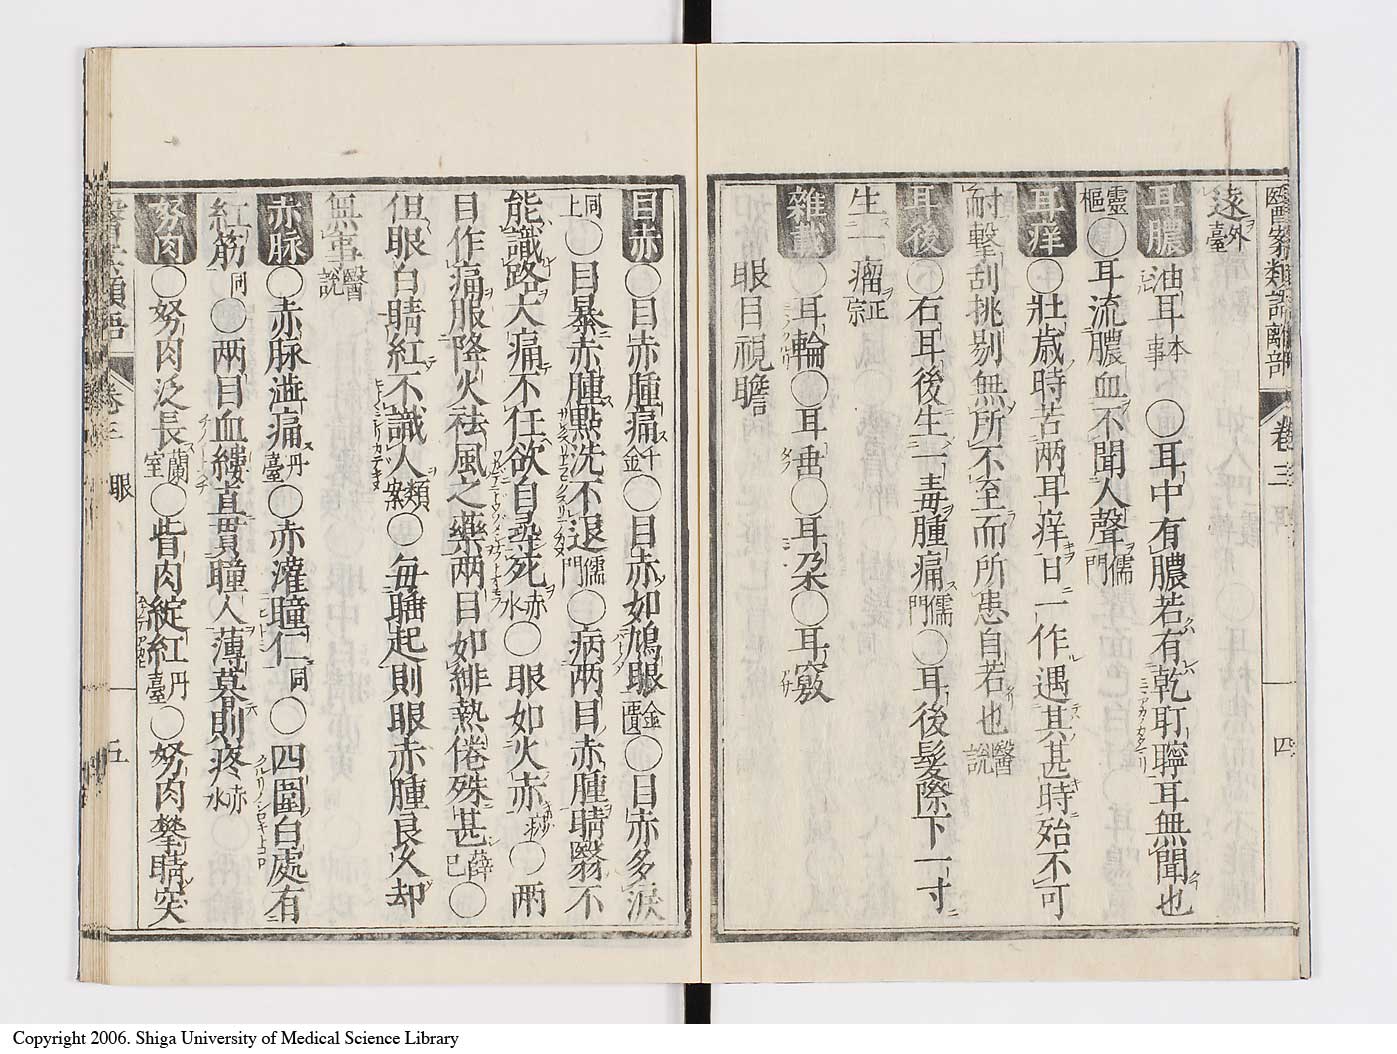 遠外臺
耳膿 油耳本事〇耳中有膿若有乾耵聹耳無聞也
靈樞〇耳流膿血不聞人聲儒門
耳痒〇壯歳時苦兩耳痒日一作遇其甚時殆不可
耐擊刮挑剔無所不至而所患自若也醫說
耳後〇右耳後生一毒腫痛儒門〇耳後髮際下一寸
生一瘤正宗
雜載〇耳輪〇耳𦖋〇耳朶〇耳竅
眼目視瞻
卷三
四
目赤〇目赤腫痛千金〇目赤如鳩眼金匱〇目赤多淚
同上〇目暴赤腫點洗不退儒門〇病兩目赤腫睛翳不
能識路大痛不任欲自尋死赤水〇眼如火赤〇兩
目作痛服降火祛風之藥兩目如緋熱倦殊甚薛已〇
但眼白睛紅不識人類案〇每睡起則眼赤腫良久却
無事醫說
赤脉〇赤脉澁痛丹臺〇赤灌瞳仁同〇四圍白處有
紅筋同〇兩目血縷直貫瞳人薄暮則疼赤水
努肉〇努肉泛長蘭室〇眥肉綻紅丹臺〇努肉攀睛突
卷三 眼
五
Copyright 2006. Shiga University of Medical Science Library